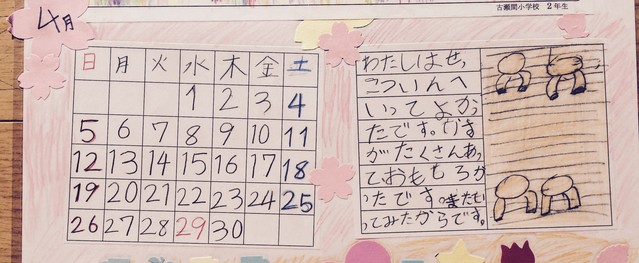 古瀬関小学校 2年生
4月
日 月 火 水 木 金 土
1 2 3 4
5 6 7 8 9 10 11
12 13 14 15 16 17 18
19 20 21 22 23 24 25
26 27 28 29 30
わたしはせっ
こついんへ
いってよかっ
たです。
がたくさんあっ
ておもしろか
ったです。またい
ってみたからです。